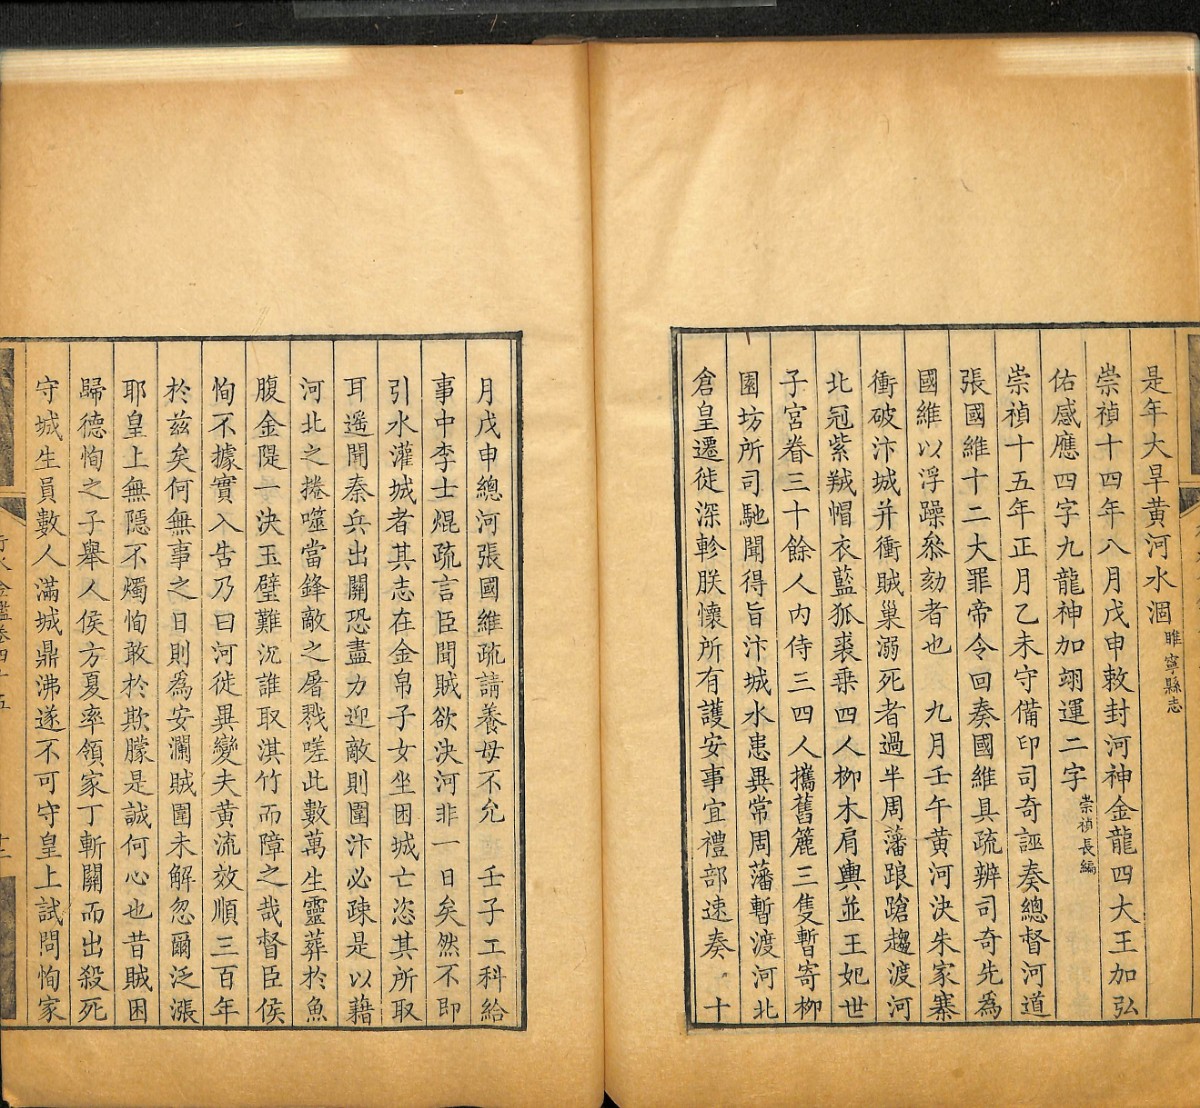 是年大旱黃河水涸睢寧縣志
崇禎十四年八月戊申敕封河神金龍四大王加弘
佑感應四字九龍神加翊運二字崇禎長編
崇禎十五年正月乙未守備印司奇誣奏總督河道
張國維十二大罪帝令回奏國維具疏辨司奇先為
國維以浮躁叅劾者也　九月壬午黃河決朱家寨
衝破汴城并衝賊巢溺死者過半周藩踉蹌趨渡河
北冠紫羢帽衣藍狐裘乗四人柳木肩輿並王妃世
子宮眷三十餘人內侍三四人攜舊簏三隻暫寄柳
園坊所司馳聞得旨汴城水患異常周藩暫渡河北
倉皇遷徙深軫朕懷所有護安事宜禮部速奏　十
月戊申總河張國維疏請養母不允　壬子工科給
事中李士焜疏言臣聞賊欲決河非一日矣然不即
引水灌城者其志在金帛子女坐困城亡恣其所取
耳遥聞秦兵出關恐盡力迎敵則圍汴必疎是以藉
河北之捲噬當鋒敵之屠戮嗟此數萬生靈葬於魚
腹金隄一決玉璧難沉誰取淇竹而障之哉督臣侯
恂不據實入告乃曰河徙異變夫黃流效順三百年
於兹矣何無事之日則為安瀾賊圍未解忽爾泛漲
耶皇上無隱不燭恂敢於欺朦是誠何心也昔賊困
歸德恂之子舉人侯方夏率領家丁斬關而出殺死
守城生員數人滿城鼎沸遂不可守皇上試問恂家
金鑑卷四十五
十二